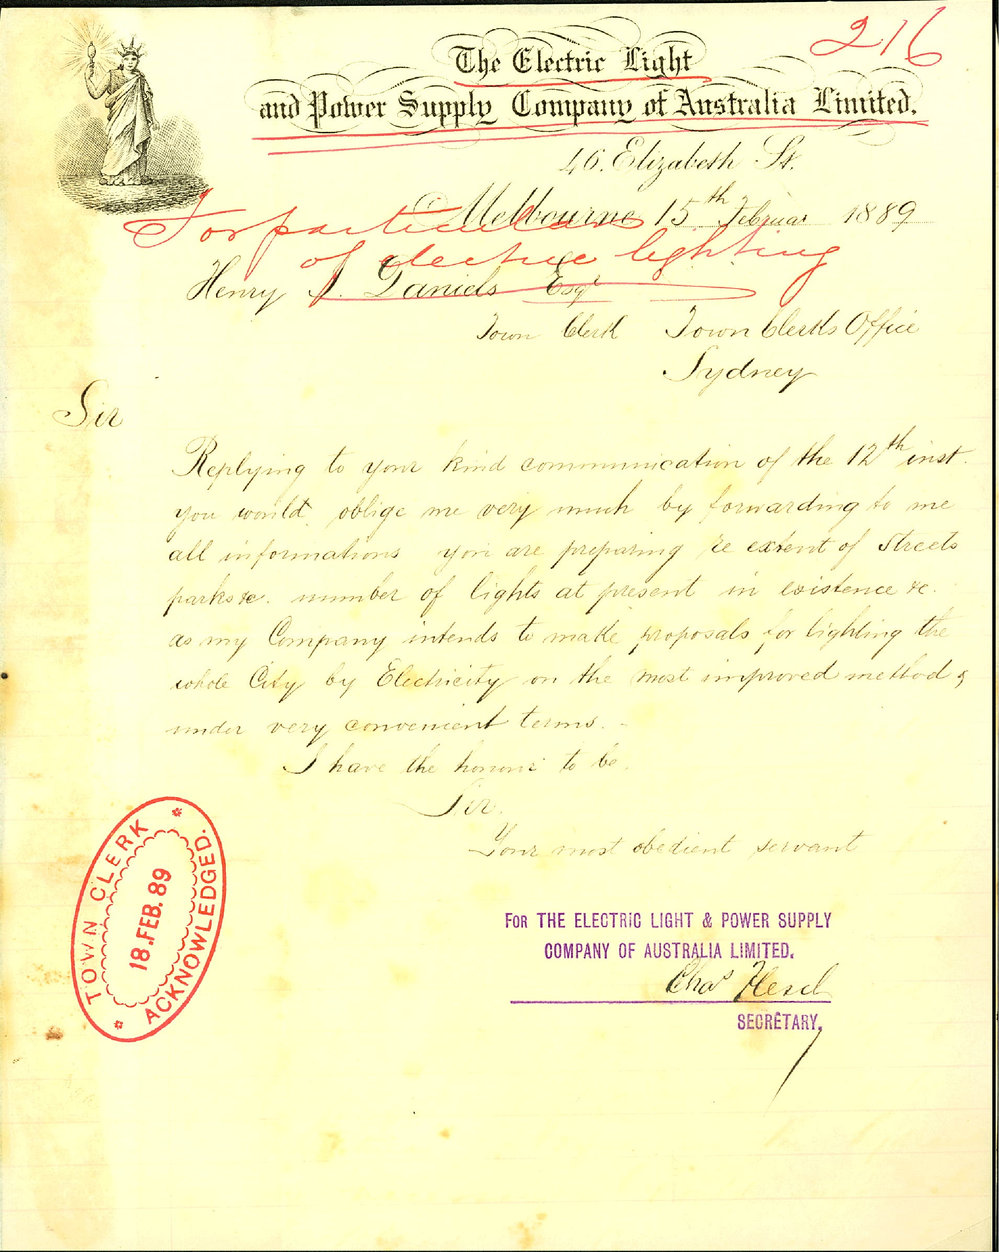 216
The Electric Light
and Power Supply Company of Australia Limited.
46. Elizabeth St.
Melbourne 15th Februar 1889
For particulars
of electric lighting
Henry J. Daniels Esqr
Town Clerk Town Clerks Office
Sydney
Sir
Replying to your kind communication of the 12th inst.
you would oblige me very much by forwarding to me
all informations you are preparing re extent of Streets
parks &c. number of lights at present in existence &c.
as my Company intends to make proposals for lighting the
whole City by Electricity on the most improved method &
under very convenient terms. -
I have the honour to be.
Sir.
Your most obedient servant
TOWN CLERK
18. FEB. 89
ACKNOWLEDGED.
FOR THE ELECTRIC LIGHT & POWER SUPPLY
COMPANY OF AUSTRALIA LIMITED.
Chas
SECRETARY.